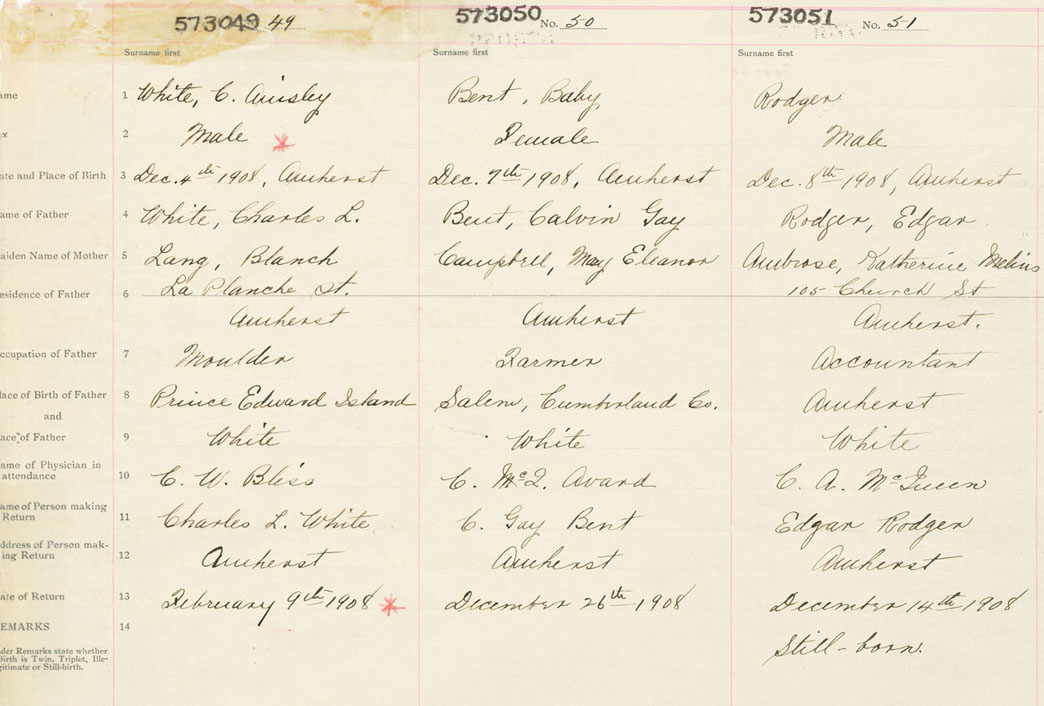 573049 49
573050 No. 50
573051 No. 51
Surname first Surname first Surname first
ame 1 White, C. Ainsley Bent, Baby, Rodger
ex 2 Male Female Male
ate and Place of Birth 3 Dec. 4th 1908, Amherst Dec. 7th 1908, Amherst Dec. 8th 1908, Amherst
ame of Father 4 White, Charles L. Bent, Calvin Gay Rodger, Edgar
aiden Name of Mother 5 Lang, Blanch Campbell, May Eleanor Ambrose, Katherine
La Planche St. 105 Church St
esidence of Father 6
Amherst Amherst Amherst.
ccupation of Father 7 Moulder Farmer Accountant
lace of Birth of Father 8 Prince Edward Island Salem, Cumberland Co. Amherst
and
ace of Father 9 White White White
ame of Physician in
attendance 10 C. W. Bliss C. McQ. Avard C. A. McQueen
ame of Person making
Return 11 Charles L. White C. Gay Bent Edgar Rodger
ddress of Person mak-
ing Return 12 Amherst Amherst Amherst
ate of Return 13 February 9th 1908 December 26th 1908 December 14th 1908
EMARKS 14
Still-born.
der Remarks state whether
Birth is Twin, Triplet, Ille-
gitimate or Still-birth.